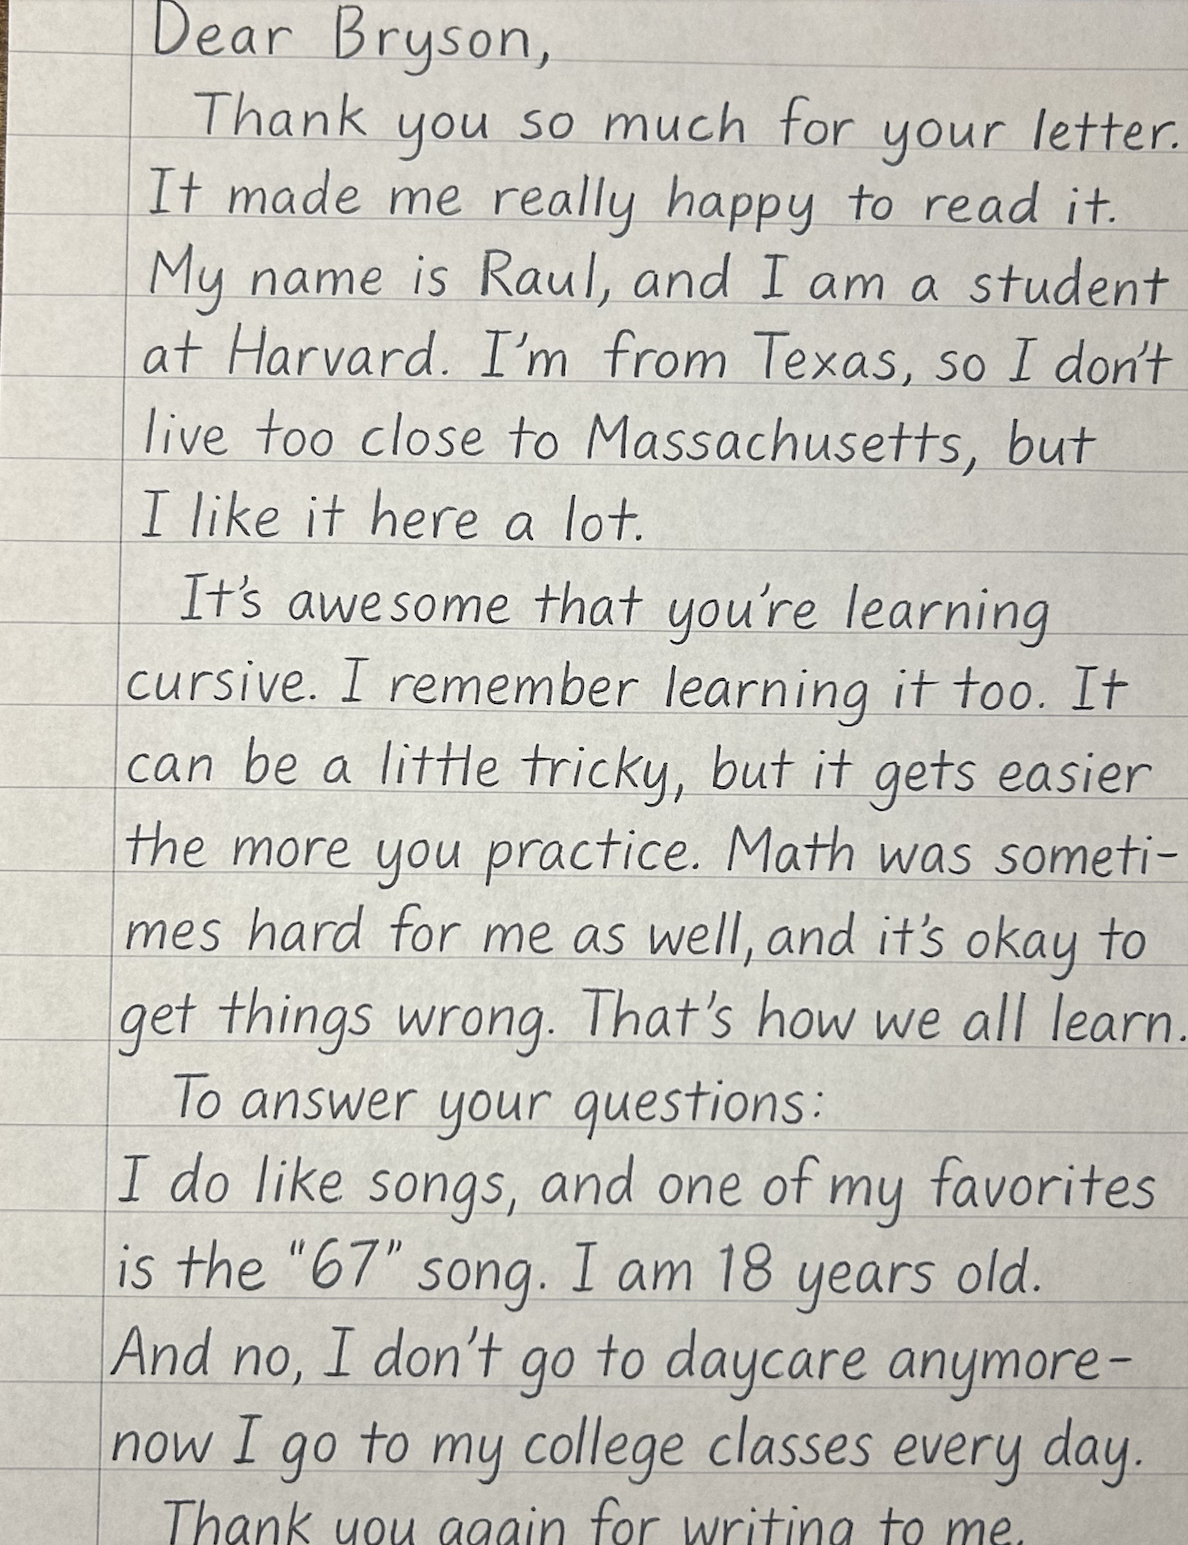 Dear Bryson,
Thank you so much for your letter.
It made me really happy to read it.
My name is Raul, and I am a student
at Harvard. I'm from Texas, so I don't
live too close to Massachusetts, but
I like it here a lot.
It's awesome that you're learning
cursive. I remember learning it too. It
can be a little tricky, but it gets easier
the more you practice. Math was someti-
mes hard for me as well, and it's okay to
get things wrong. That's how we all learn.
To answer your questions:
I do like songs, and one of my favorites
is the "67" song. I am 18 years old.
And no, I don't go to daycare anymore-
now I go to my college classes every day.
Thank you again for writing to me.